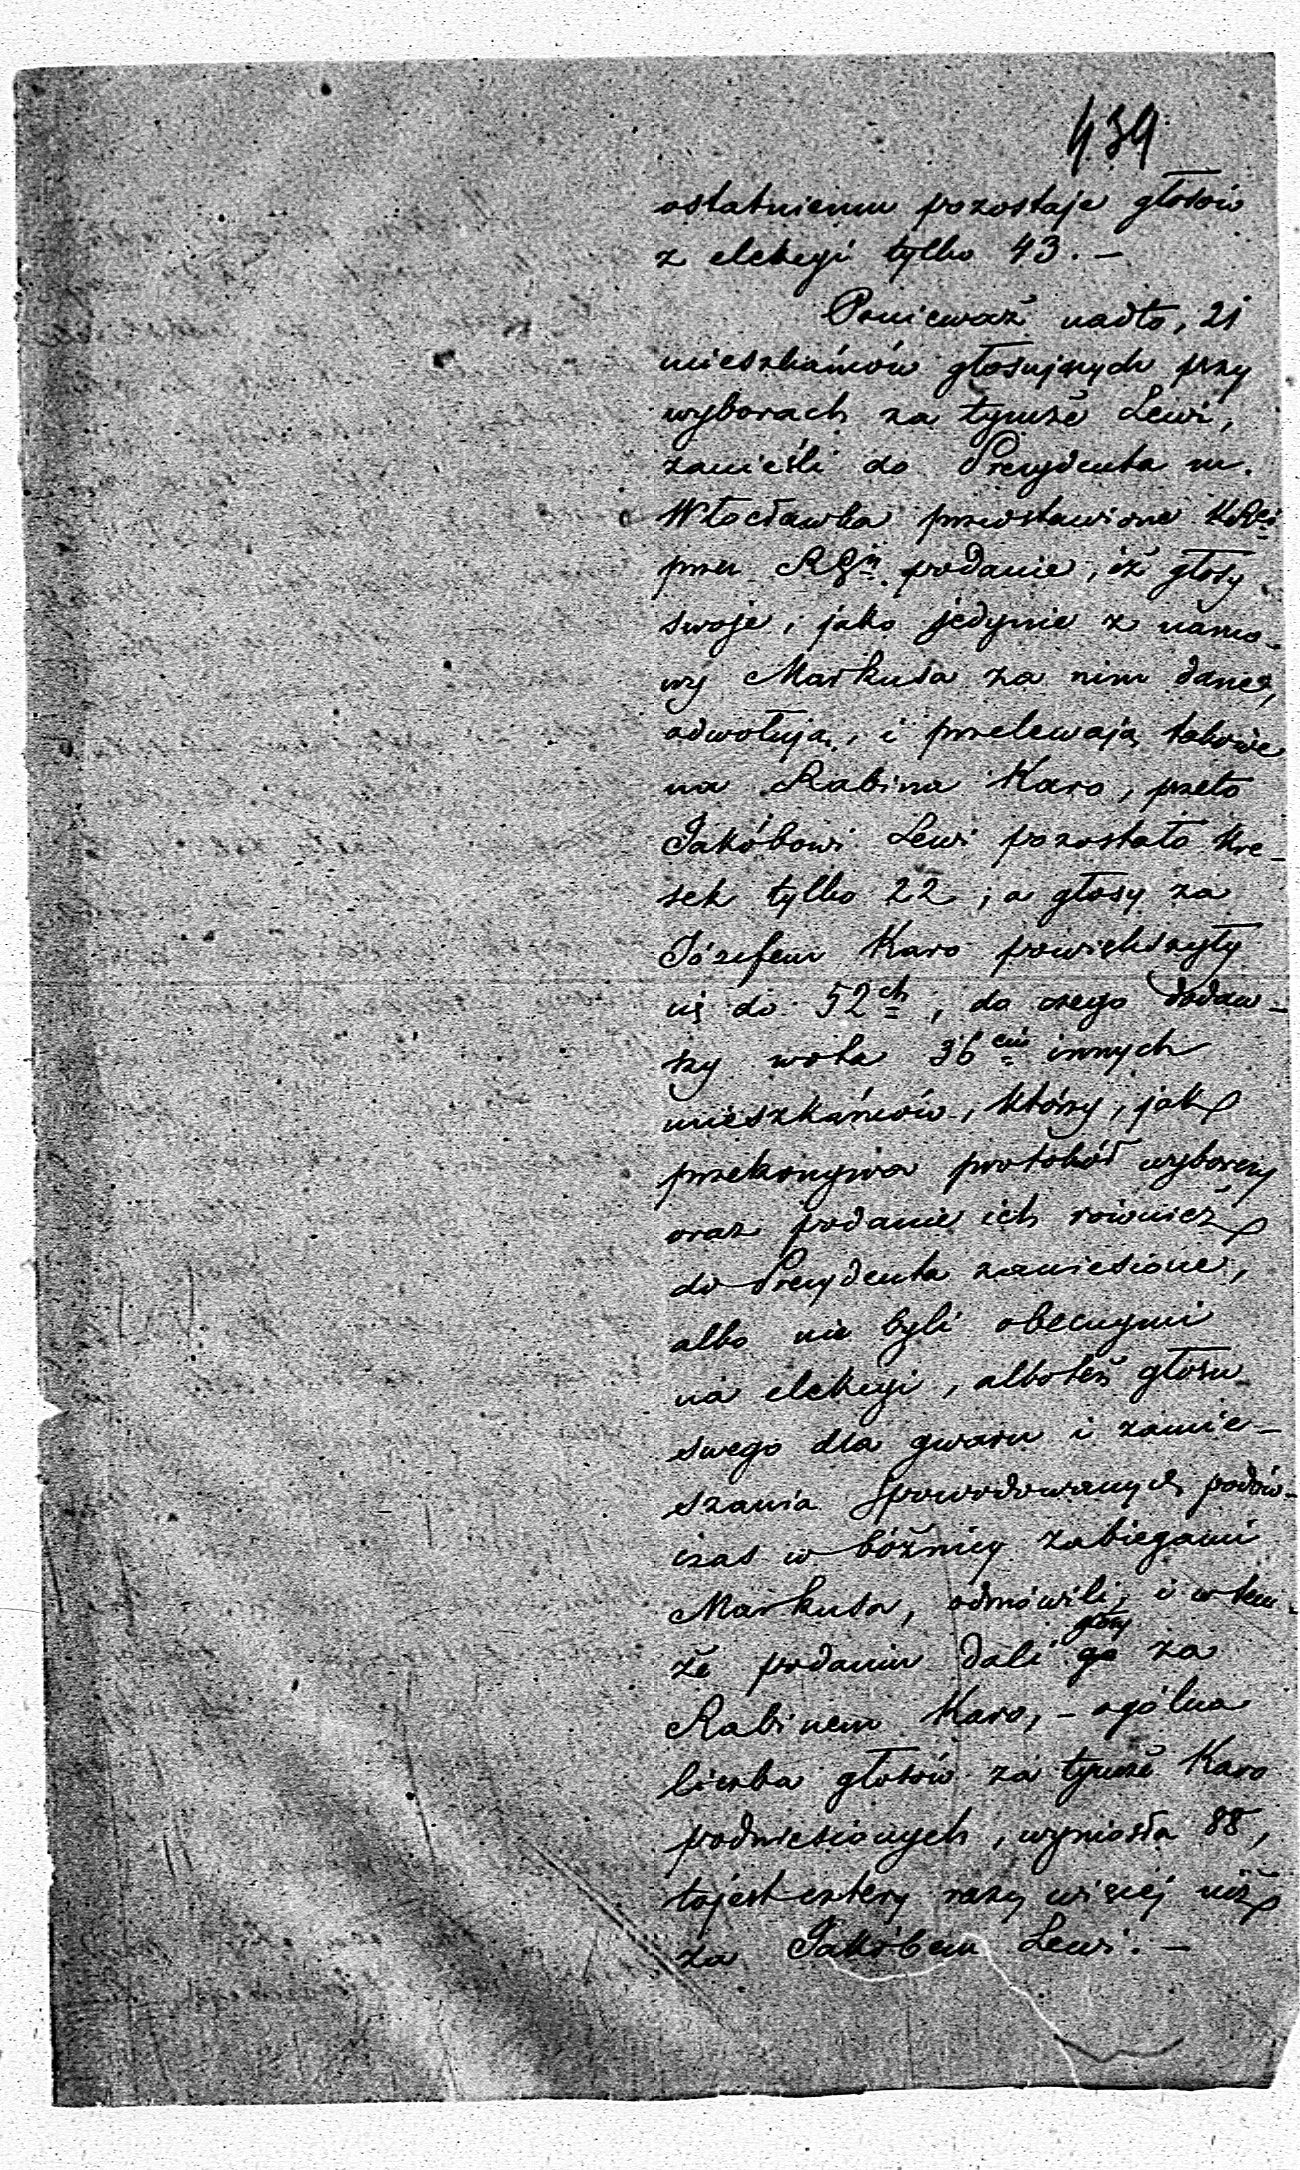 439
ostatniemu pozostaje głosów
z elekcyi tylko 43. —
Ponieważ nadto, 21
mieszkańców głosujących przy
wyborach za tymże Lewi,
zanieśli do Prezydenta m.
Włocławka przedstawione
przez podanie, iż głosy
swoje, jako jedynie z namo-
wy Markusa za nim dane,
odwołują, i przelewają takowe
na Rabina Karo, przeto
Jakóbowi Lewi pozostało kre-
sek tylko 22, a głosy za
Józefem Karo powiększyły
się do 52ch, do czego dodaw-
szy wota 36ciu innych
mieszkańców, którzy, jak
przekonywa protokół wyborczy
oraz podanie ich również
do Prezydenta zaniesione,
albo nie byli obecnymi
na elekcyi, albo też głosu
swego dla gwaru i zamie-
szania spowodowanych podów-
czas w bóżnicy zabiegami
Markusa, odmówili, i w tem-
że podaniu dali go głosy za
Rabinem Karo, – ogólna
liczba głosów za tymże Karo
podniesionych, wyniosła 88,
to jest cztery razy więcej niż
za Jakóbem Lewi. —